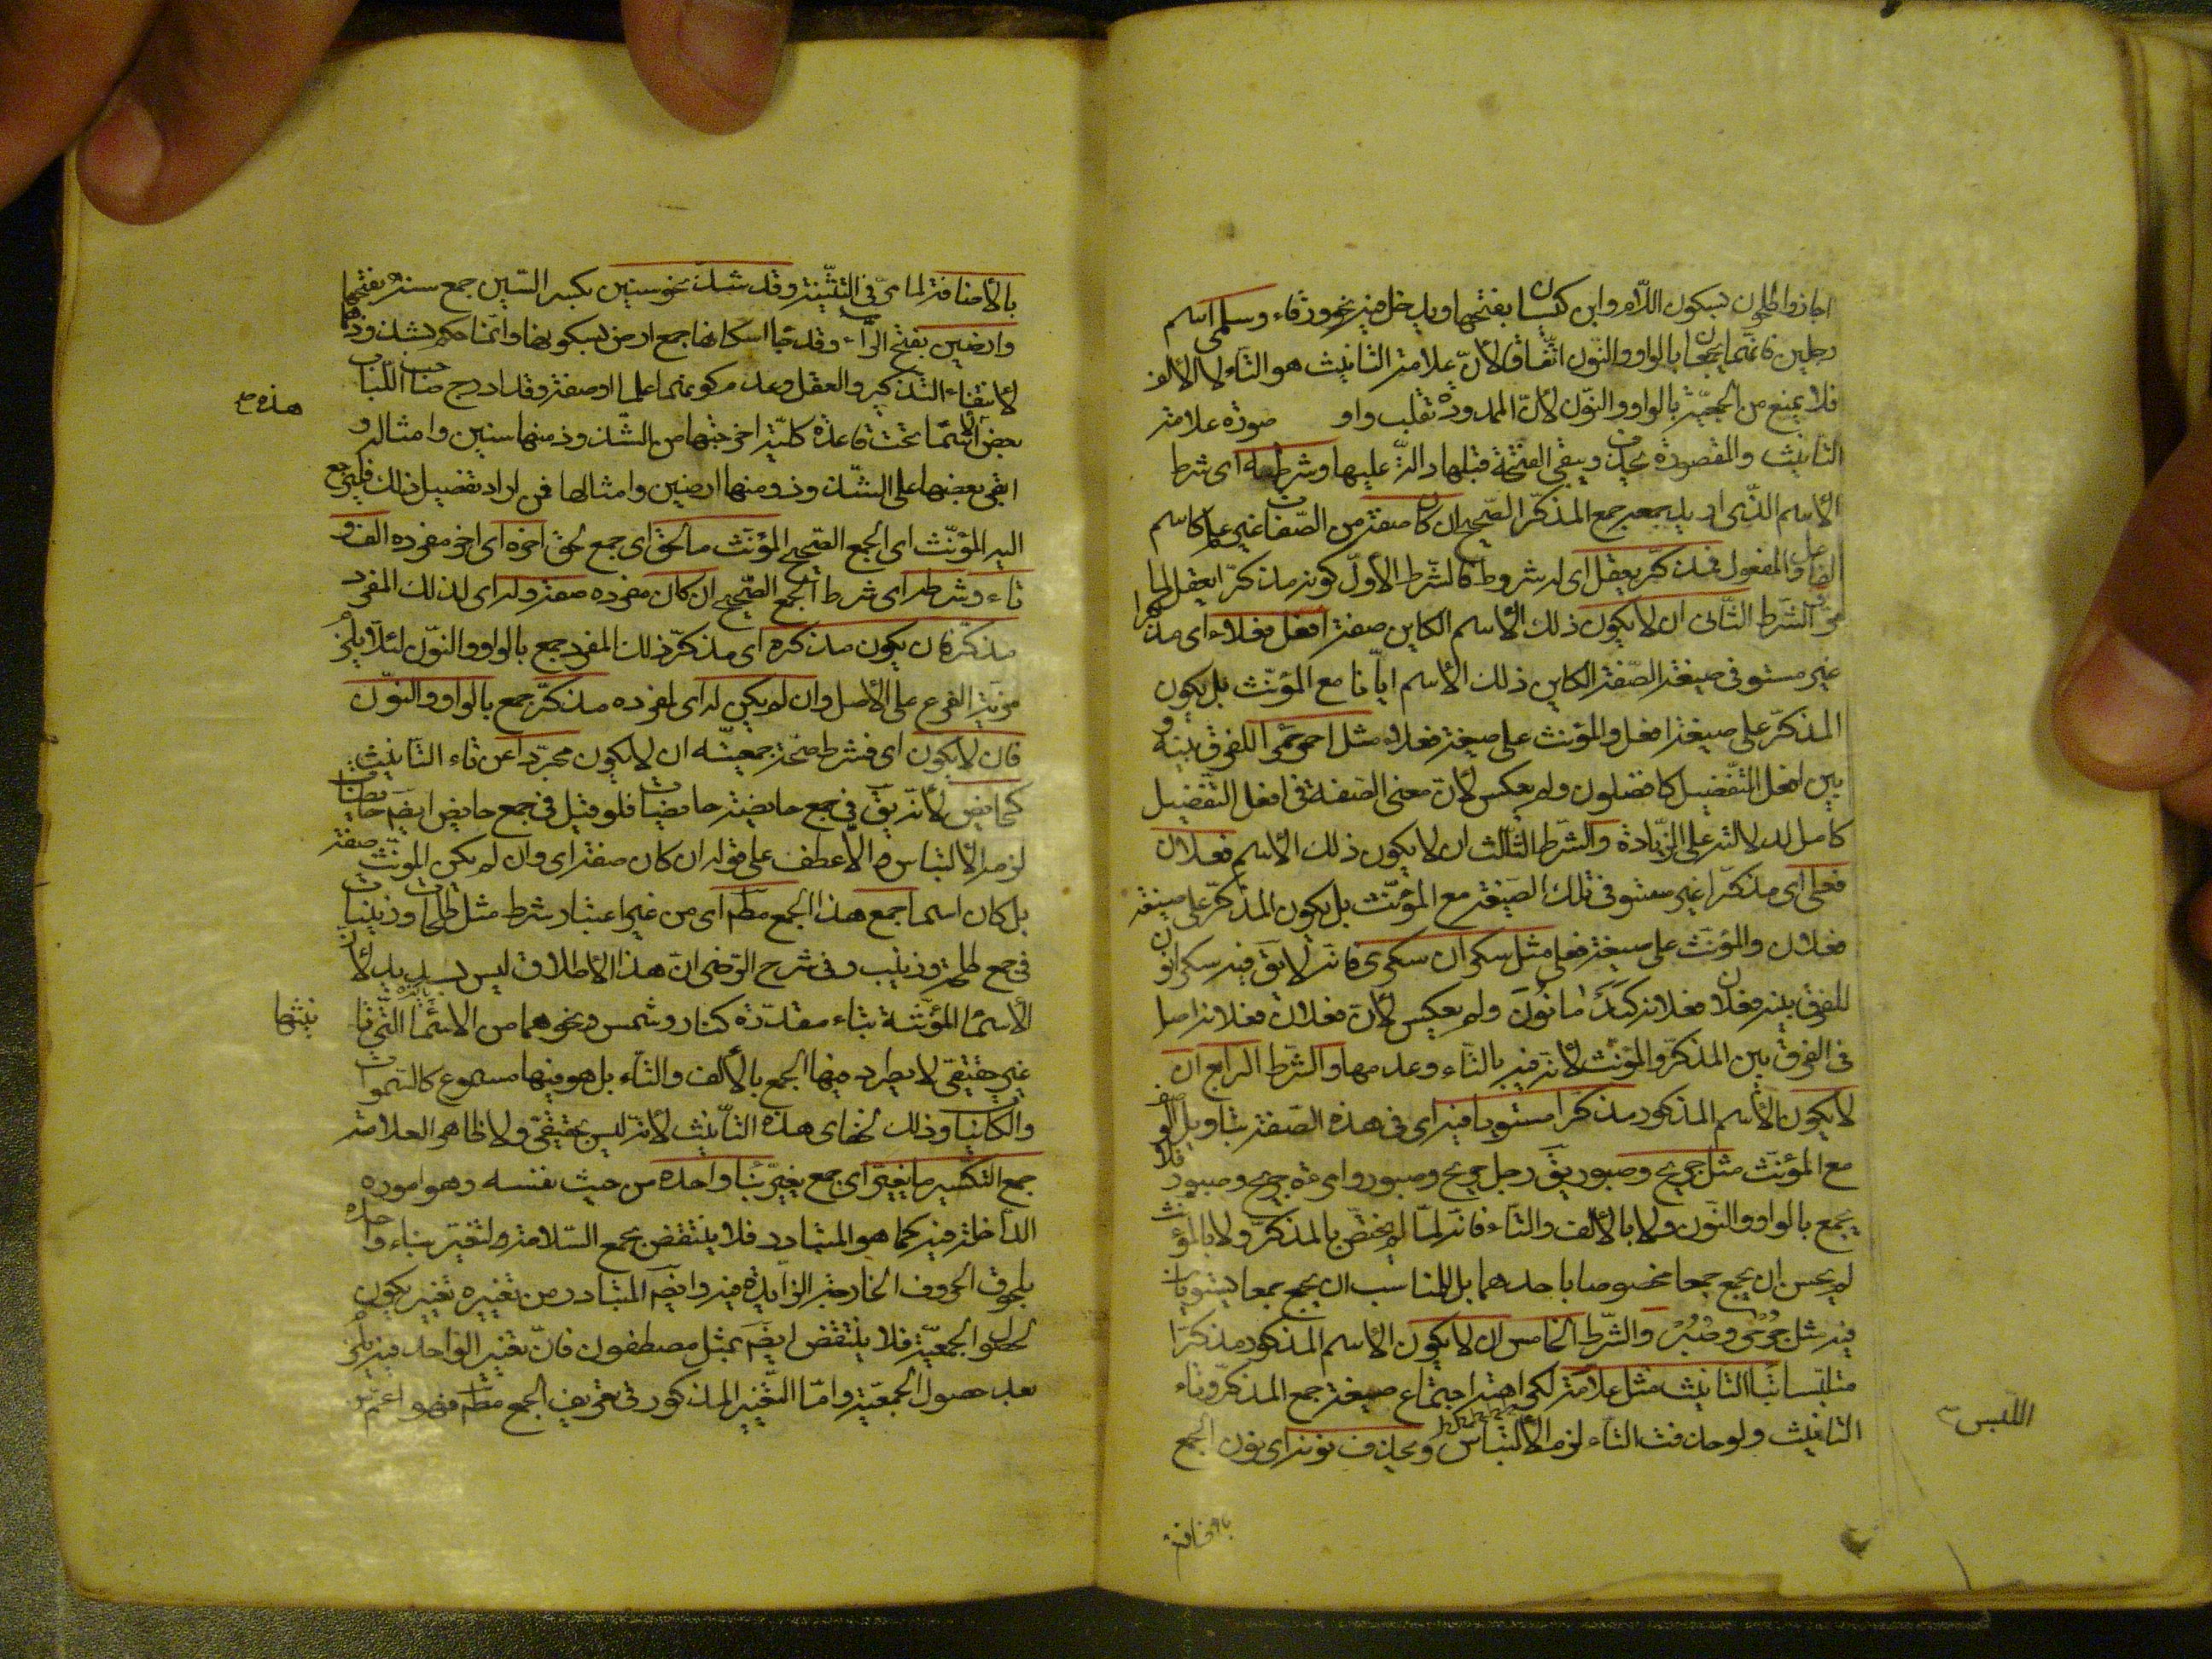 اجازوا طلحون بسكون اللام وابن كيسان بفتحها ويدخل فيه نحو ورقاء وسلمى اسم
رجلين فانهما يجمعان بالواو والنون اتفاقا لان علامة التانيث هو التاء لا الالف
فلا يمنع من الجمعية بالواو والنون لان الممدودة تقلب واوا صورة علامة
التانيث والمقصورة تحذف ويبقى الفتحة قبلها دالة عليها وشرطه اى شرط
الاسم الذى اريد جمعه جمع المذكر الصحيح ان كان صفة من الصفات غير علم كاسم
الفاعل والمفعول فمذكر يعقل اى له شروط فالشرط الاول كونه مذكرا يعقل لما
مر والشرط الثانى ان لا يكون ذلك الاسم الكاين صفة افعل فعلاء اى مذكرا
غير مستو فى صيغة الصفة الكاين ذلك الاسم اياها مع المؤنث بل يكون
المذكر على صيغة افعل والمؤنث على صيغة فعلاء مثل احمر حمراء للفرق بينه و
بين افعل التفضيل كافضلون ولم يعكس لان معنى الصفة فى افعل التفضيل
كامل لدلالته على الزيادة والشرط الثالث ان لا يكون ذلك الاسم فعلان
فعلى اى مذكرا غير مستو فى تلك الصيغة مع المؤنث بل يكون المذكر على صيغة
فعلان والمؤنث على صيغة فعلى مثل سكران سكرى فانه لا يق فيه سكرانون
للفرق بينه وفعلان فعلانة كندمانون ولم يعكس لان فعلان فعلانة اصل
فى الفرق بين المذكر والمؤنث لانه فيه بالتاء وعدمها والشرط الرابع ان
لا يكون الاسم المذكور مذكرا مستويا فيه اى فى هذه الصفة بتاويل الوصف
مع المؤنث مثل جريح وصبور يق رجل جريح وصبور وامرءة جريح وصبور فلا
يجمع بالواو والنون ولا بالالف والتاء فانه لما لم يختص بالمذكر ولا بالمؤنث
لم يحسن ان يجمع جمعا مخصوصا باحدهما بل المناسب ان يجمع جمعا يستويان
فيه مثل جرحى وصبر والشرط الخامس ان لا يكون الاسم المذكور مذكرا
متلبسا بتاء التانيث مثل علامة لكراهة اجتماع صيغة جمع المذكر وتاء
التانيث ولو حذفت التاء لزم الالتباس ويحذف نونه اى نون الجمع
اللبس
بالاضافة لما مر فى التثنية وقد شذ نحو سنين بكسر السين جمع سنة بفتحها
وارضين بفتح الراء وقد جاء اسكانها جمع ارض بسكونها وانما حكم بشذوذهما
لانتفاء التذكير والعقل وعدم كونهما علما او صفة وقد ادرج صاحب اللباب
هذه
بعض الاسماء تحت قاعدة كلية اخرجتها من الشذوذ منها سنين وامثاله و
ابقى بعضها على الشذوذ ومنها ارضين وامثالها فمن اراد تفصيل ذلك فليرجع
اليه المؤنث اى الجمع الصحيح المؤنث ما لحق اى جمع لحق اخره اى اخر مفرده الف و
تاء وشرطه اى شرط الجمع الصحيح ان كان مفرده صفة وله اى لذلك المفرد
مذكر فان يكون مذكره اى مذكر ذلك المفرد جمع بالواو والنون لئلا يلزم
مزية الفرع على الاصل وان لم يكن له اى لمفرده مذكر جمع بالواو والنون
فان لا يكون اى فشرط صحة جمعيته ان لا يكون مجردا عن تاء التانيث
كحايض لانه يق فى جمع حايضة حايضات فلو قيل فى جمع حايض ايضا حايضات
لزم الالتباس والا عطف على قوله ان كان صفة اى وان لم يكن المؤنث صفة
بل كان اسما جمع هذا الجمع مطم اى من غير اعتبار شرط مثل طلحات وزينبات
فى جمع طلحة وزينب وفى شرح الرضى ان هذا الاطلاق ليس بسديد لان
الاسماء المؤنثة بتاء مقدرة كنار وشمس ونحوهما من الاسماء التى تا
نيثها
غير حقيقى لا يطرد فيها الجمع بالالف والتاء بل هو فيها مسموع كالسموات
والكاينات وذلك لخفاى هذه التانيث لانه ليس بحقيقى ولا ظاهر العلامة
جمع التكسير ما تغير اى جمع يغير بناء واحده من حيث نفسه وهو اموره
الداخلة فيه كما هو المتبادر فلا ينتقض بجمع السلامة ولتغير بناء واحده
بلحوق الحروف الخارجة الزايدة فيه وايضا المتبادر من تغيره تغير يكون
لحصول الجمعية فلا ينتقض ايضا بمثل مصطفون فان تغير الواحد فيه يلزم
بعد حصول الجمعية واما التغير المذكور فى تعريف الجمع مطم فهو اعم من